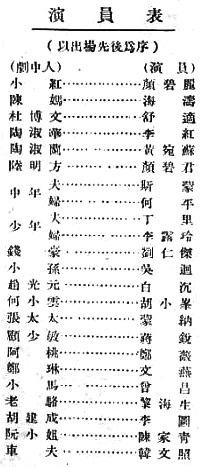 演員表
（以出場先後為序）
（劇中人） （演員）
小紅…………顏碧麗
陳嫣…………海濤
杜博文…………舒適
陶淑華…………李紅
陶淑蘭…………黃宛蘇
陸明方…………顏碧君
中年夫…………斯蒙
婦…………何平
少年夫…………丁里
婦…………李露玲
錢豪…………劉仁傑
小孫…………吳迴
趙光元…………白沉
何小雲…………胡小峯
張太太…………蒙納
顧少敏…………蔣銳
阿桃…………鄭薇
鄭琳…………文燕
小馬…………曾昌
老駱…………黎海生
胡建成…………李圖
阮小姐…………陳家青
車夫…………韓文照